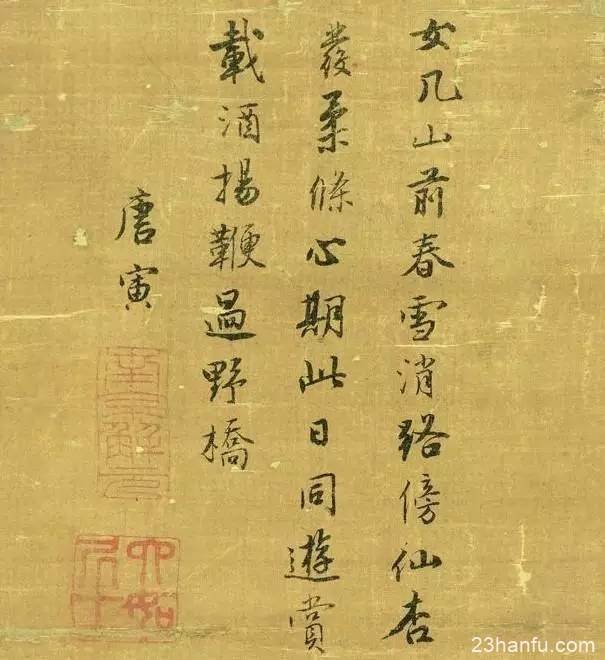 女几山前春雪消路傍仙杏
發柔條心期此日同遊賞
載酒揚鞭過野橋
唐寅
南京解元
六如居士
23hanfu.com